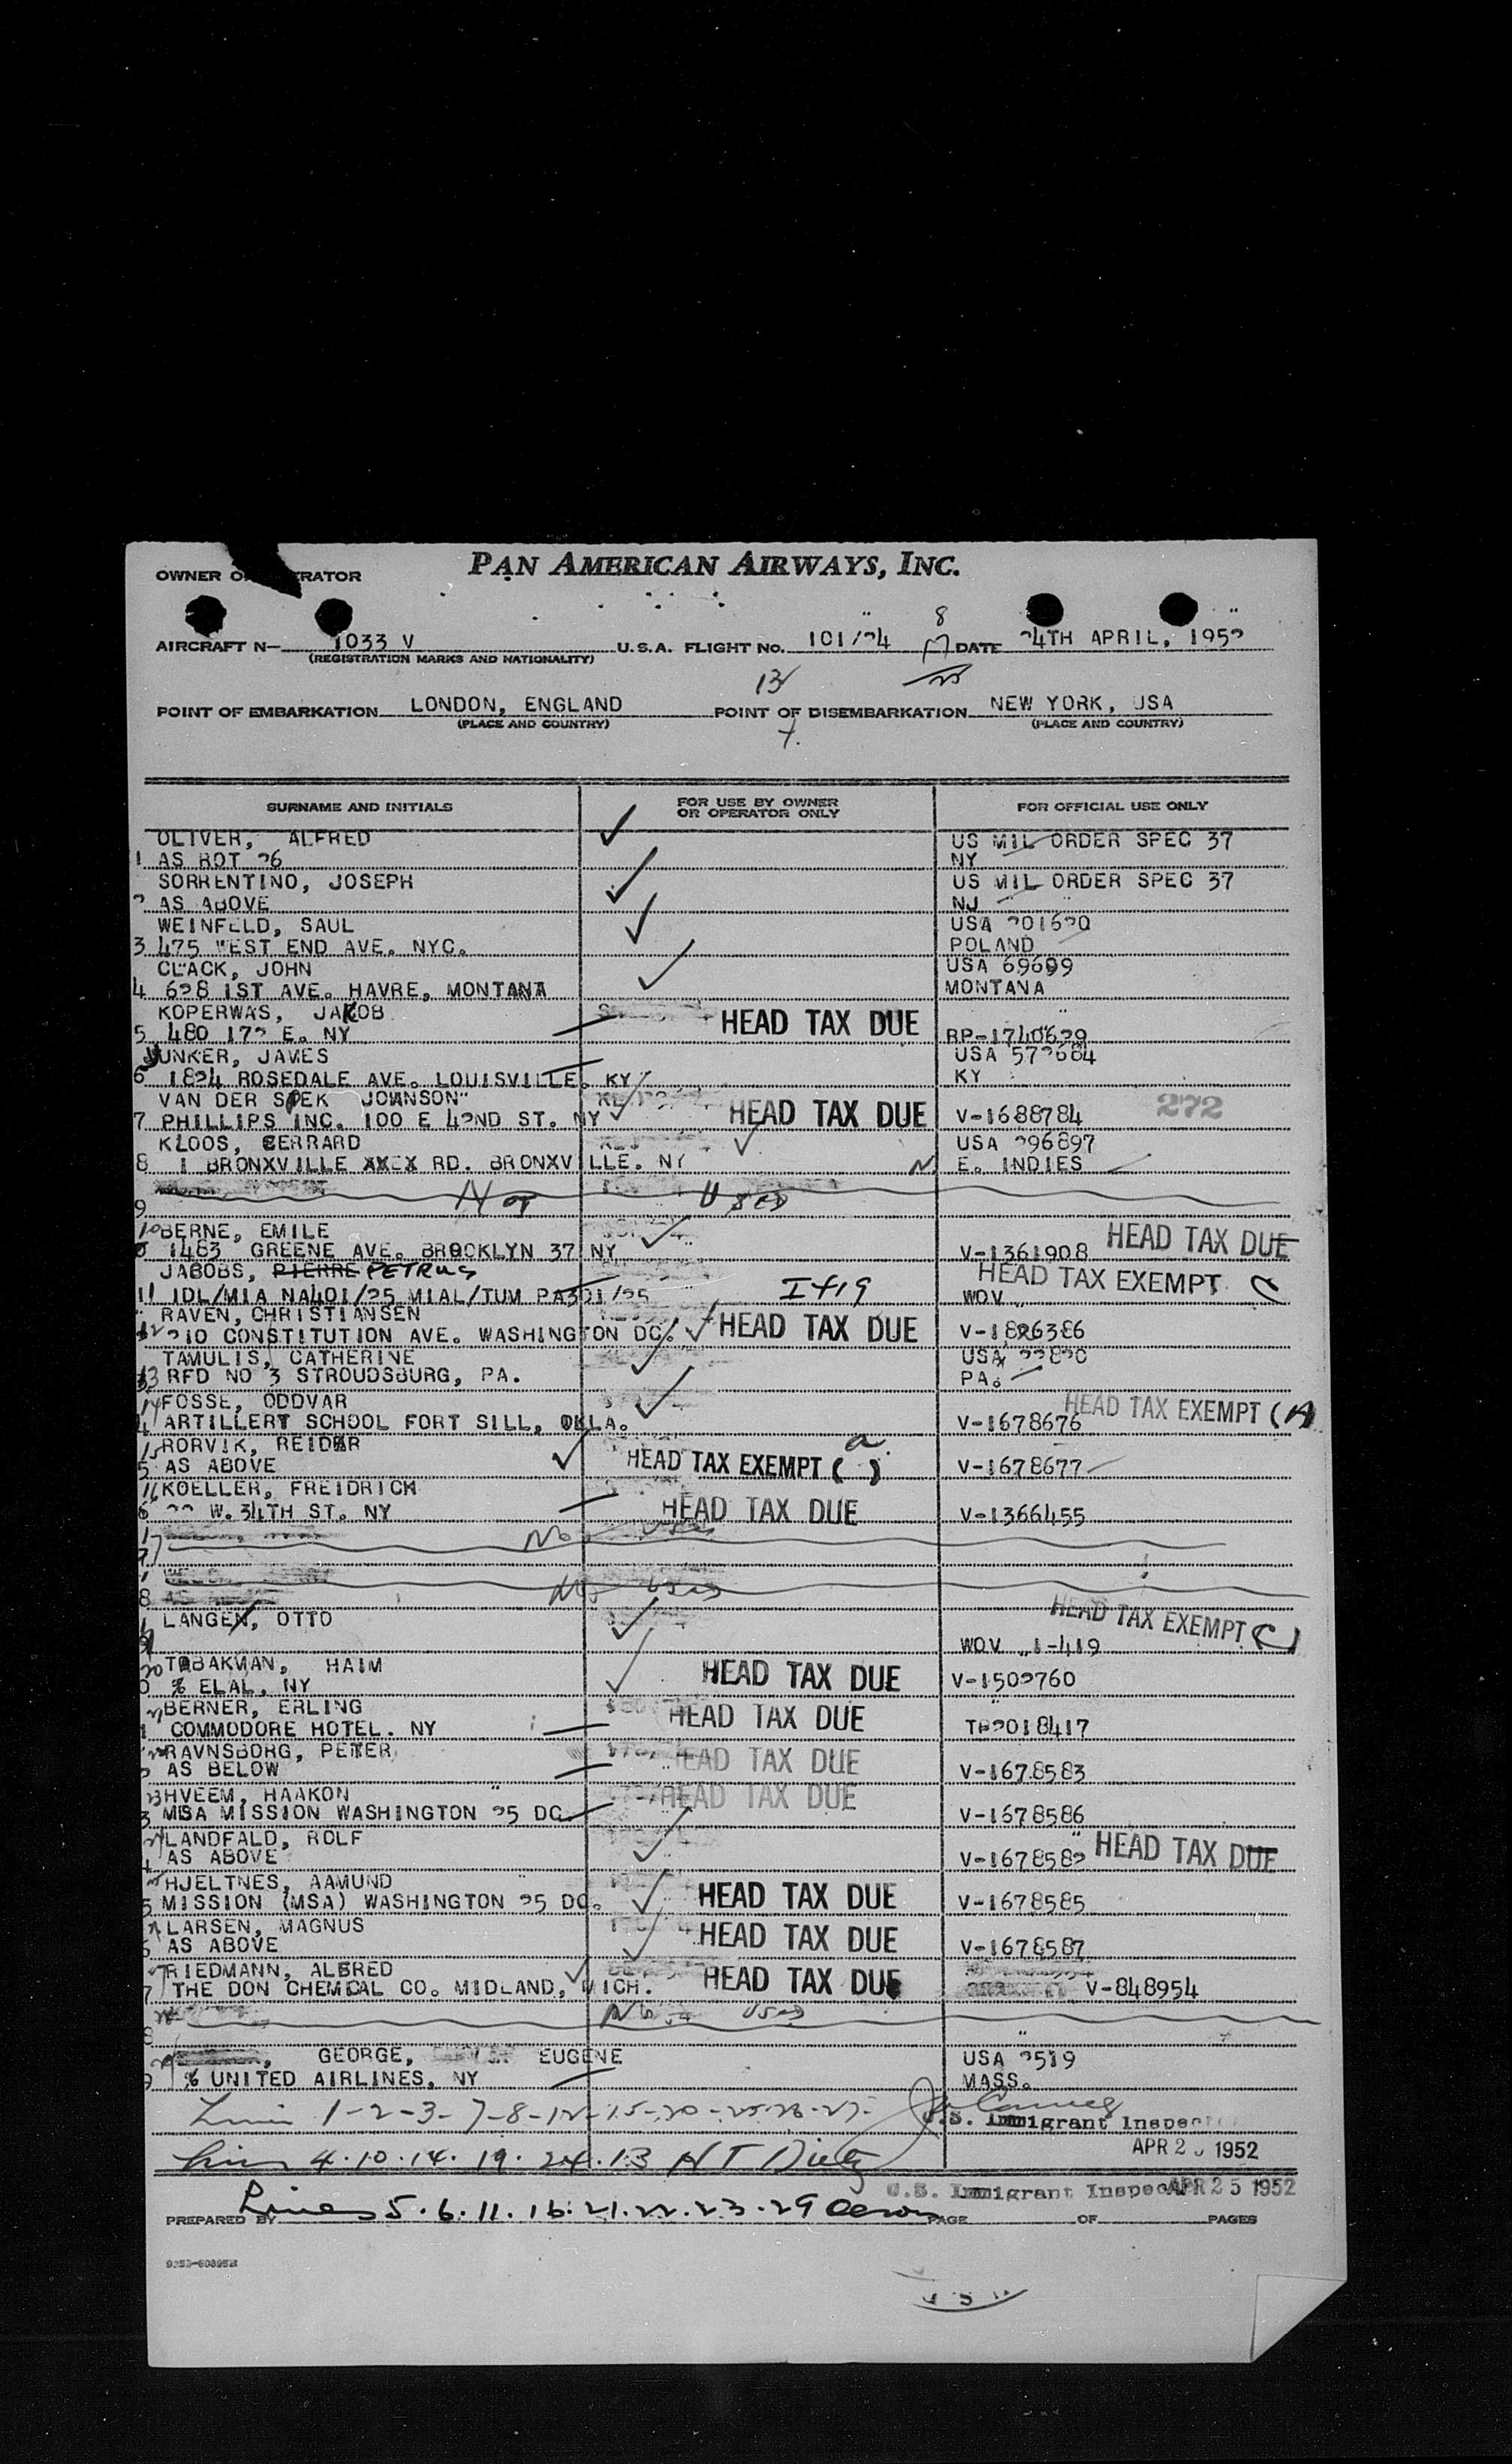 PAN AMERICAN AIRWAYS, INC.
OWNER O RATOR
AIRCRAFT N— 1033 V U.S.A. FLIGHT NO. 101/24 8 DATE 24TH APRIL, 1952
(REGISTRATION MARKS AND NATIONALITY)
13
POINT OF EMBARKATION LONDON, ENGLAND POINT OF DISEMBARKATION NEW YORK, USA
(PLACE AND COUNTRY) (PLACE AND COUNTRY)
7.
SURNAME AND INITIALS FOR USE BY OWNER OR OPERATOR ONLY FOR OFFICIAL USE ONLY
OLIVER, ALFRED ✓ US MIL ORDER SPEC 37
1 AS ROT 26 NY
SORRENTINO, JOSEPH ✓ US MIL ORDER SPEC 37
2 AS ABOVE NJ
WEINFELD, SAUL ✓ USA 201620
3 475 WEST END AVE. NYC. POLAND
CLACK, JOHN ✓ USA 69699
4 628 1ST AVE. HAVRE, MONTANA MONTANA
KOPERWAS, JAKOB HEAD TAX DUE
5 480 172 E. NY RP-1740629
YUNKER, JAMES USA 572684
6 1824 ROSEDALE AVE. LOUISVILLE. KY KY
VAN DER SPEK JOHNSON HEAD TAX DUE 272
7 PHILLIPS INC. 100 E 42ND ST. NY ✓ V-1688784
KLOOS, GERRARD ✓ USA 296897
8 1 BRONXVILLE XXEX RD. BRONXVILLE. NY N. E. INDIES
9 Not Used
10 BERNE, EMILE ✓ HEAD TAX DUE
0 1483 GREENE AVE. BROOKLYN 37 NY V-1361908
JABOBS, PIERRE PETRUS HEAD TAX EXEMPT C
11 IDL/MIA NA401/25 MIAL/TUM PA301/25 I419 WOV
RAVEN, CHRISTIANSEN HEAD TAX DUE
12 210 CONSTITUTION AVE. WASHINGTON DC. ✓ V-1826386
TAMULIS, CATHERINE ✓ USA 22820
13 RFD NO 3 STROUDSBURG, PA. PA.
14 FOSSE, ODDVAR ✓ HEAD TAX EXEMPT (A)
4 ARTILLERY SCHOOL FORT SILL, OKLA. V-1678676
15 RORVIK, REIDAR ✓ a
5 AS ABOVE HEAD TAX EXEMPT ( ) V-1678677
16 KOELLER, FREIDRICH HEAD TAX DUE
6 22 W. 34TH ST. NY V-1366455
17 Not Used
8 Not Used
LANGEN, OTTO ✓ HEAD TAX EXEMPT (C)
WOV 1-419
20 TABAKMAN, HAIM ✓ HEAD TAX DUE
0 % ELAL, NY V-1502760
21 BERNER, ERLING HEAD TAX DUE
1 COMMODORE HOTEL. NY TP2018417
22 RAVNSBORG, PETTER HEAD TAX DUE
AS BELOW V-1678583
23 HVEEM, HAAKON HEAD TAX DUE
3 MSA MISSION WASHINGTON 25 DC V-1678586
24 LANDFALD, ROLF ✓ HEAD TAX DUE
4 AS ABOVE V-1678582
25 HJELTNES, AAMUND ✓ HEAD TAX DUE
5 MISSION (MSA) WASHINGTON 25 DC. V-1678585
LARSEN, MAGNUS ✓ HEAD TAX DUE
6 AS ABOVE V-1678587
RIEDMANN, ALBRED ✓ HEAD TAX DUE
7 THE DON CHEMICAL CO. MIDLAND, MICH. V-848954
8 Not Used
29 GEORGE, EUGENE USA 2519
% UNITED AIRLINES, NY MASS.
Lines 1-2-3-7-8-12-15-20-25-26-27-
U.S. Immigrant Inspector
APR 25 1952
Lines 4.10.14.19.24.13 HT
U.S. Immigrant Inspector APR 25 1952
Lines 5.6.11.16.21.22.23.29
PREPARED BY PAGE OF PAGES